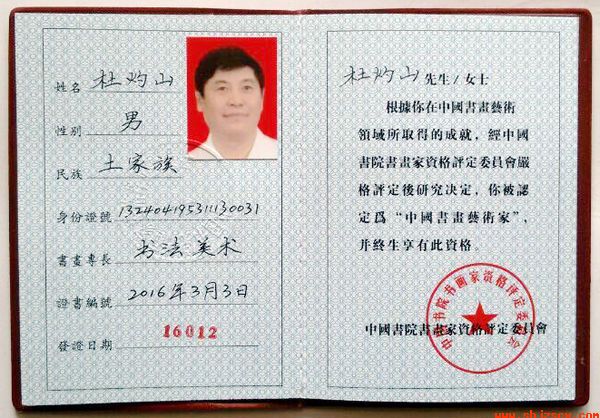 姓名 杜灼山
性別 男
民族 土家族
身份證號 132404195311130031
書畫專長 书法美术
證書編號 2016年3月3日
發證日期 16012
杜灼山 先生/女士
根據你在中國書畫藝術
領域所取得的成就，經中國
書院書畫家資格評定委員會嚴
格評定後研究決定，你被認
定爲“中國書畫藝術家”，
并終生享有此資格。
中国书院书画家资格评定委员会
中國書院書畫家資格評定委員會